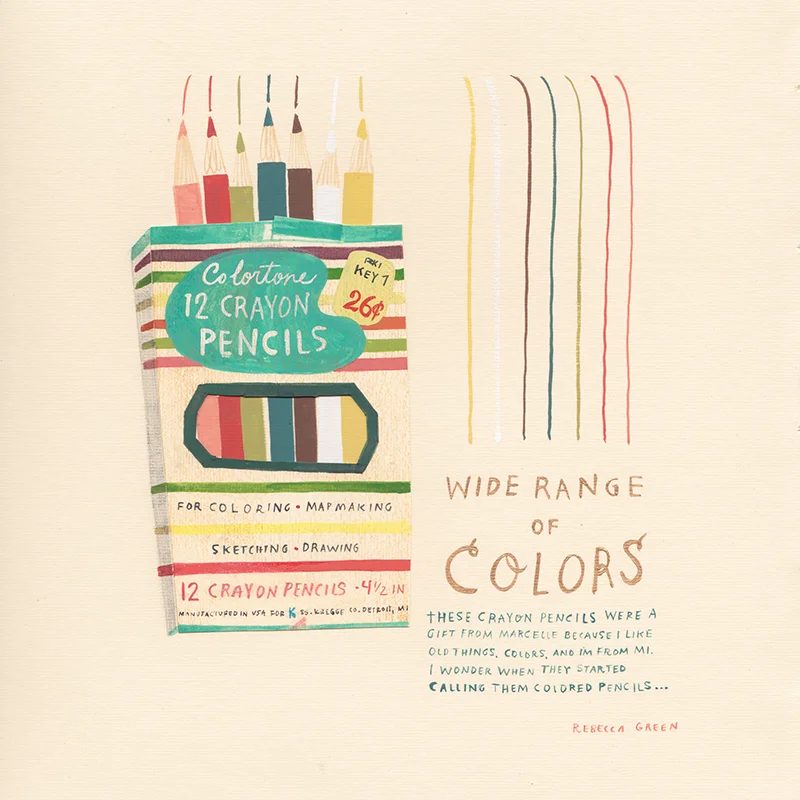 Colortone
12 CRAYON
PENCILS
KEY 7
26¢
FOR COLORING • MAPMAKING
SKETCHING • DRAWING
12 CRAYON PENCILS • 4 1/2 IN
MANUFACTURED IN USA FOR K SS. KRESGE CO. DETROIT, MI
WIDE RANGE
OF
COLORS
THESE CRAYON PENCILS WERE A
GIFT FROM MARCELLE BECAUSE I LIKE
OLD THINGS, COLORS, AND I'M FROM MI.
I WONDER WHEN THEY STARTED
CALLING THEM COLORED PENCILS...
REBECCA GREEN